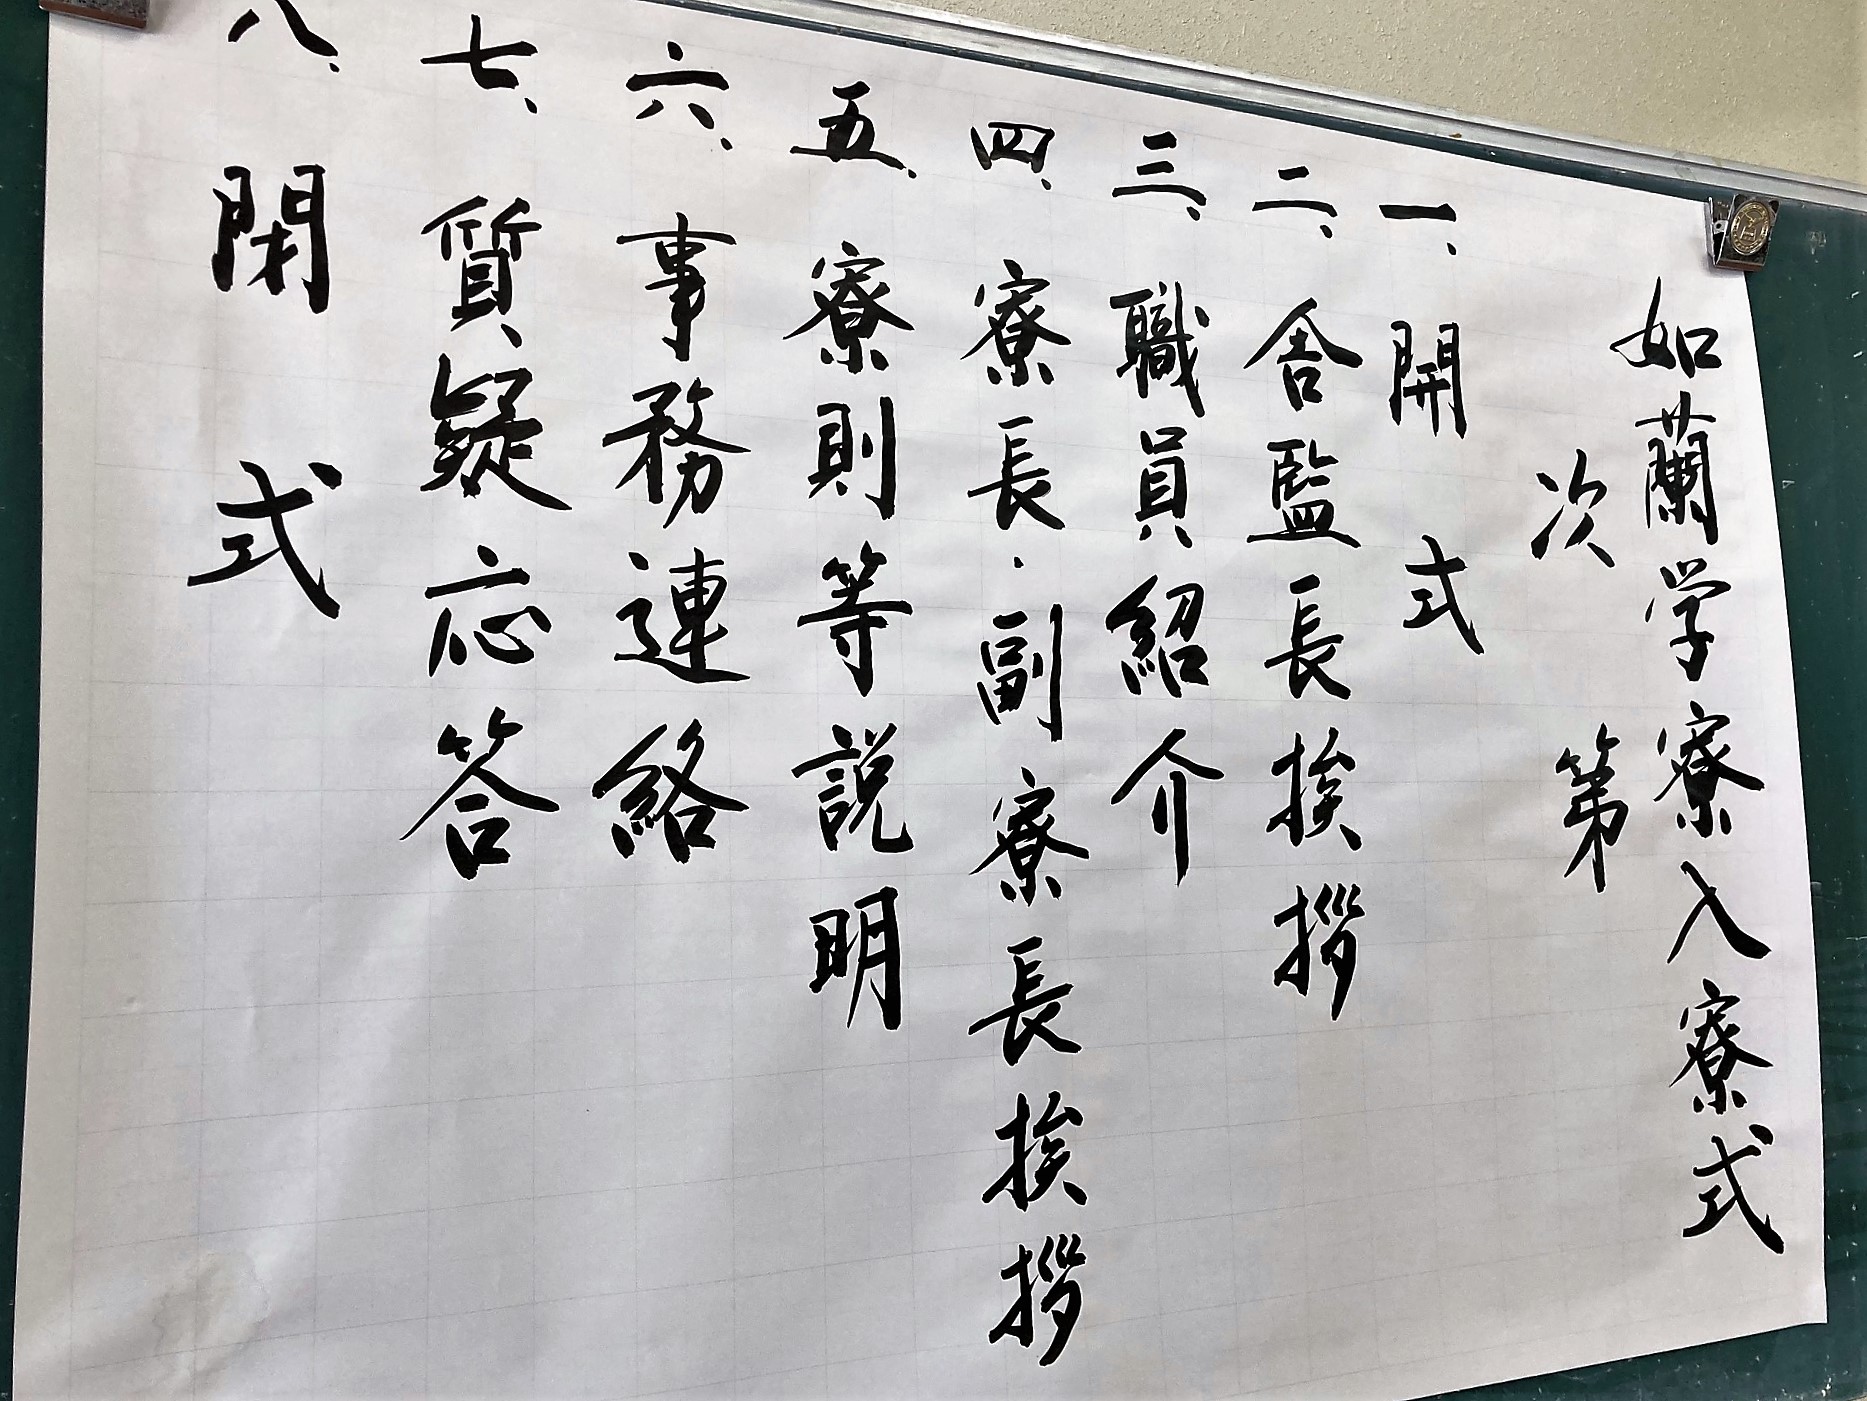 如蘭学寮入寮式
次第
一、開式
二、舎監長挨拶
三、職員紹介
四、寮長・副寮長挨拶
五、寮則等説明
六、事務連絡
七、質疑応答
八、閉式